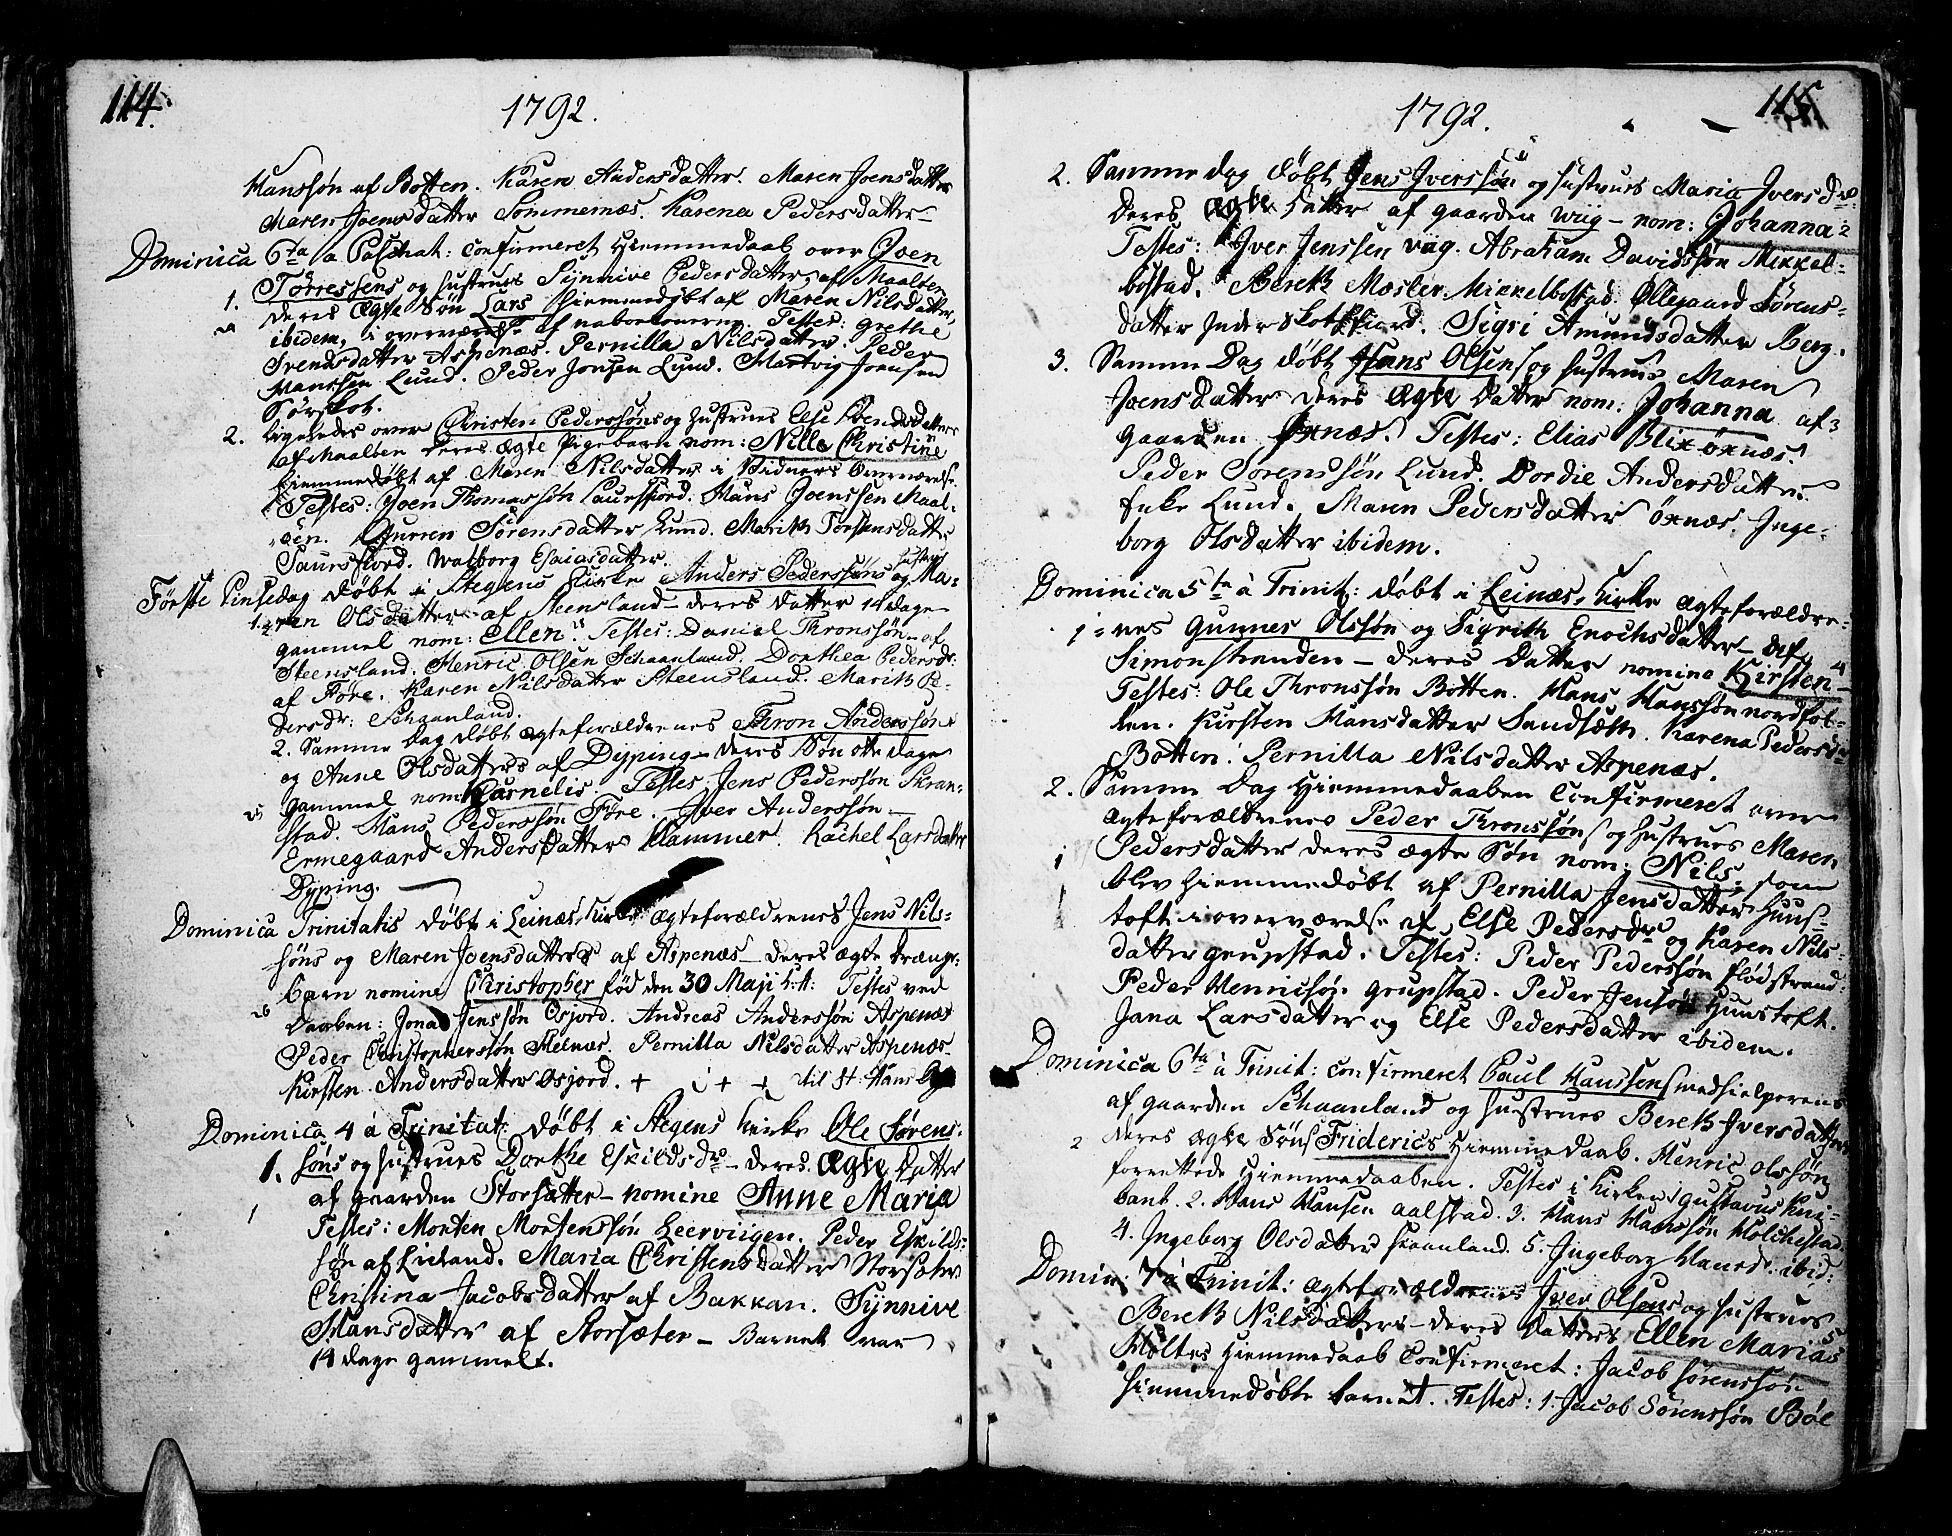 114.
1792.
Hanssøn af Botten. Karen Andersdatter. Maren Joensdatter
Maren Joensdatter Sommernæs. Karena Pedersdatter
Dominica 6ta a Paschat: confirmeret Hiemmedaab over Joen
1. Torressens og Hustrues Synnive Pedersdatter af Maalben
deres Ægte Søn Lars Hiemmedøbt af Maren Nilsdatter
ibidem, i overværelse af naboekonerne. Testes: Grethe
Svendsdatter Aspenæs. Pernilla Nilsdatter. Peder
Hanssen Lund. Peder Jonsen Lund. Hartvig Joensen
Sørskot.
2. Ligeledes over Christen Pederssøns og Hustrues Else
af Maalben deres ægte Pigebarn nom: Nille Christine
hiemmedøbt af Maren Nilsdatter i Vidners Overværelse.
Testes: Joen Thomassøn Laursfiord. Hans Joenssen Maal-
øen. Gurren Sørensdatter Lund. Marith Torsensdatter
Laursfiord. Walborg Esaiasdatter.
Første Pinsedag døbt i Stegens Kirke Anders Pederssøns og Hustrues Ma-
1. ren Olsdatter af Steensland - deres Datter 14 dage
gammel nom: Ellen. Testes: Daniel Thronssøn af
Steensland. Henric Olsen Schaanland. Dorthea Pedersdr:
af Føre. Karen Nilsdatter Steensland. Marith Pe-
dersdr: Schaanland.
2. Samme Dag døbt ægteforældrenes Thron Anderssøn
og Anne Olsdatters af Dyping - deres Søn otte dage
25 gammel nom: Cornelis. Testes Jens Pederssøn Skran-
stad. Hans Pederssøn Føre. Iver Anderssøn
Ermegaard Andersdatter Hammer. Rachel Larsdatter
Dyping.
Dominica Trinitatis døbt i Leinæs Kirke ægteforældrenes Jens Nils-
søns og Maren Joensdatters af Aspenæs - deres ægte Drænge-
barn nomine Christopher fød den 30 Maji h: a: Testes ved
26 Daaben: Jonas Jenssøn Osjord. Andreas Anderssøn Aspenæs
Peder Christophersøn Helnæs. Pernilla Nilsdatter Aspenæs
Kirsten Andersdatter Osjord. + + + til St: Hans
Dominica 4 á Trinitat: døbt i Stegens Kirke Ole Sørens-
1. søns og Hustrues Dorthe Eskildsdr - deres Ægte Datter
af gaarden Storsætter - nomine Anne Maria
1 Testes: Morten Mortenssøn Leerviigen. Peder Eskilds-
søn af Lieland. Maria Christensdatter Storsæter
Christina Jacobsdatter af Bakkan. Synnive
Hansdatter af Storsæter - Barnet var
14 dage gammelt.
115
1792.
2. Samme dag døbt Jens Iverssøn og Hustrues Maria Iversdr:
deres ægte Datter af gaarden Wiig - nom: Johanna 2
Testes: Iver Jenssen viig. Abraham Davidssøn Mikkel-
bostad. Bereth Mosler Mikkelbostad. Ollegaard Sørens-
datter Inder Skotsfiord. Sigri Amundsdatter Berg.
3. Samme Dag døbt Hans Olsens og Hustrues Maren
Joensdatter deres Ægte Datter nom: Johanna af 3
gaarden Øxnæs. Testes: Elias Blix Øxnæs.
Peder Sørenssøn Lund. Dordie Andersdatter
Enke Lund. Maren Pedersdatter Øxnæs Inge-
borg Olsdatter ibidem.
Dominica 5ta à Trinit: døbt i Leinæs Kirke Ægteforældre-
1: nes Gunnes Olssøn og Sigrith Enochsdatter - af
Simonstranden - deres Datter nomine Kirsten 4
Testes: Ole Thronssøn Botten. Hans Hanssøn nordfol-
len. Kirsten Hansdatter Sandsæth. Karena Pedersdr
Botten. Pernilla Nilsdatter Aspenæs.
2. Samme Dag Hiemmedaaben Confirmeret over
Ægteforældrenes Peder Thronssøn og Hustrues Maren
1 Pedersdatter deres ægte Søn nom: Nils, som
blev Hiemmedøbt af Pernilla Jensdatter Huns-
toft i overværelse af Else Pedersdr og Karen Nils-
datter grupstad. Testes: Peder Pederssøn flødstrand:
Peder Henricsøn grupstad. Peder Jensøn Hunstoft.
Jana Larsdatter og Else Pedersdatter ibidem.
Dominica 6ta à Trinit: confirmeret Paul Hanssens medhielperens
af gaarden Schaanland og Hustrues Bereth Iversdatters
2 deres ægte Søns Friderics Hiemmedaab. Henric Olssøn
forrettede Hiemmedaaben. Testes i Kirken Gustavus
bant. 2. Hans Hansen aalstad. 3. Hans Hanssøn Holchestad.
4. Ingeborg Olsdatter Skaanland. 5. Ingeborg Hansd: ibid:
Domin: 7 à Trinit: Ægteforældrenes Iver Olsens og Hustrues
Bereth Nilsdatters - deres Datters Ellen Marias 5
Holtes Hiemmedaab Confirmeret: Jacob Sørenssøn
hiemmedøbte barnet. Testes: 1. Jacob Sørenssøn Bøe